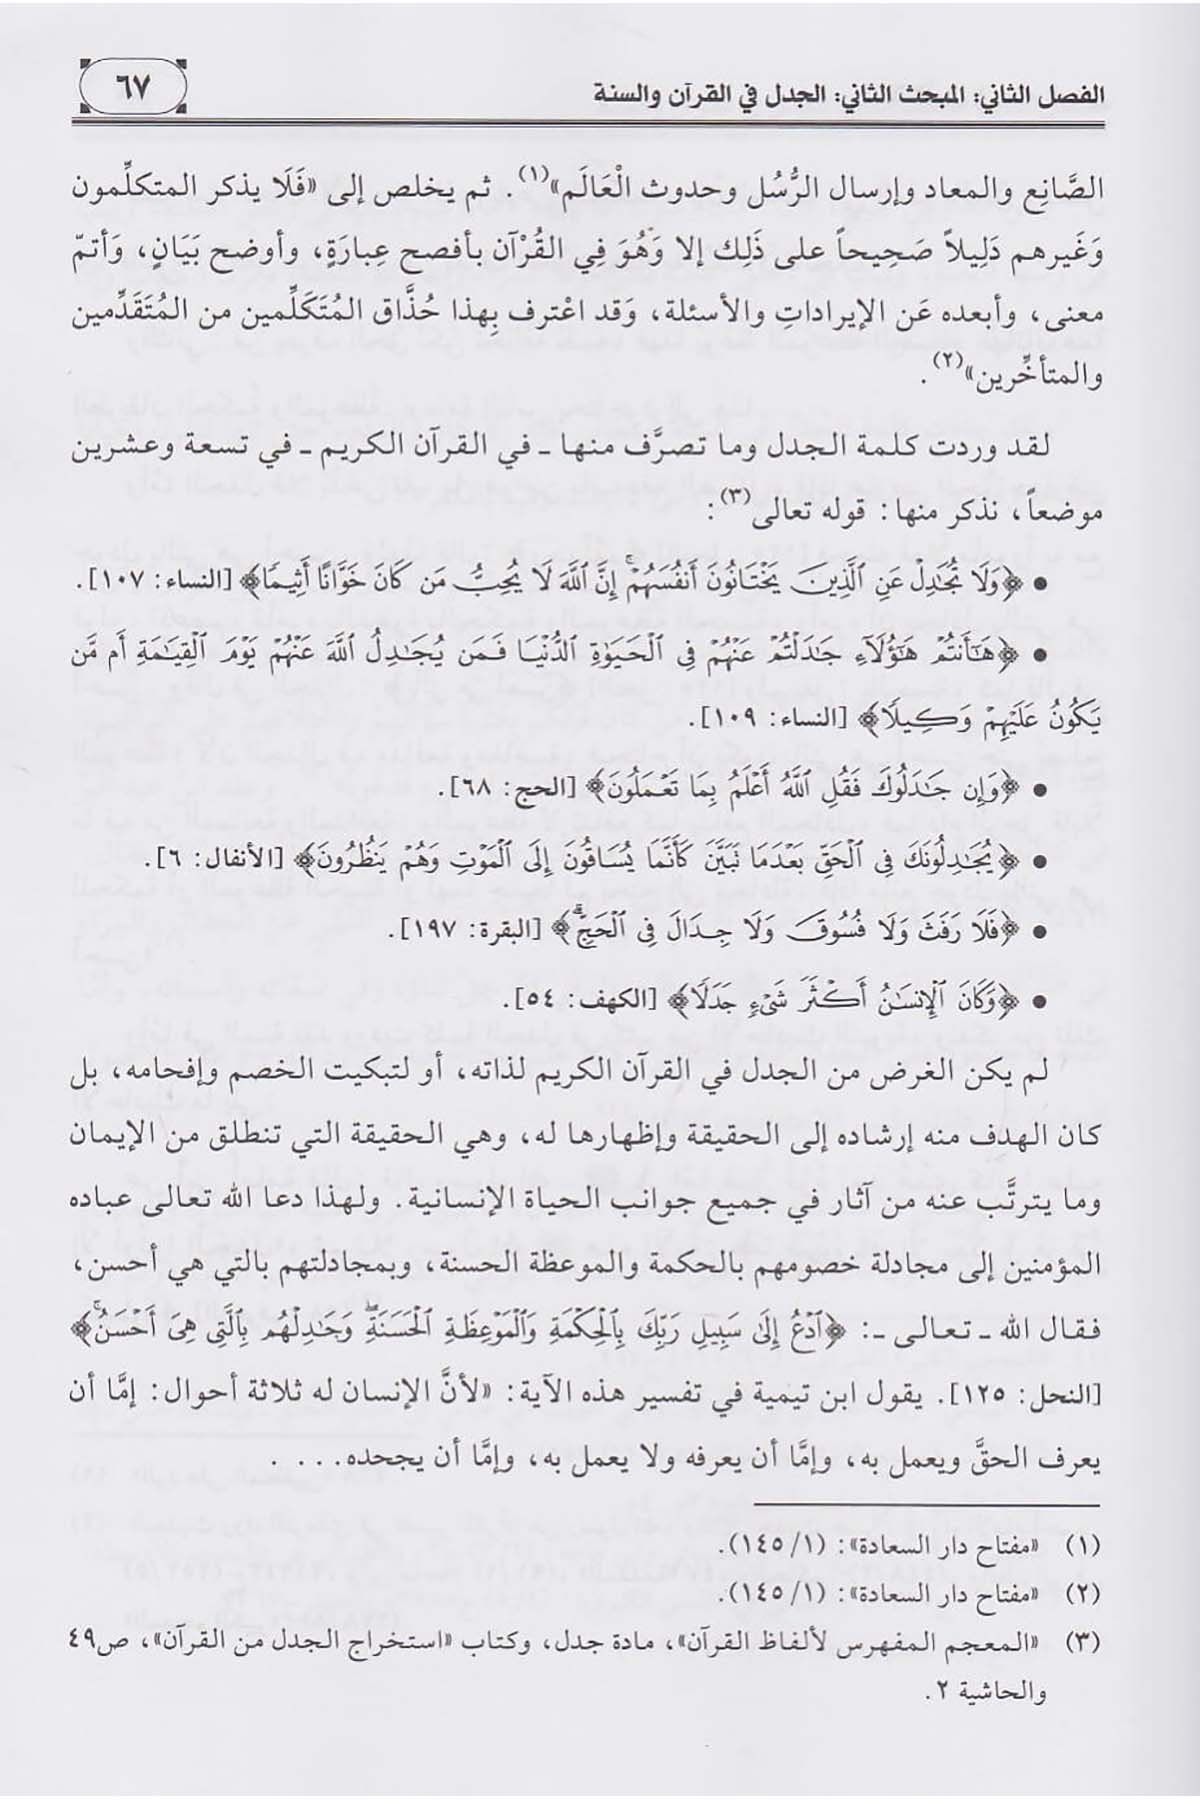 الفصل الثاني: المبحث الثاني: الجدل في القرآن والسنة
٦٧
الصَّانِع والمعاد وإرسال الرُّسُل وحدوث الْعَالَم»(١). ثم يخلص إلى «فَلَا يذكر المتكلِّمون
وَغَيرهم دَلِيلاً صَحِيحاً على ذَلِك إلا وَهُوَ فِي القُرْآن بأفصح عِبارَةٍ، وأوضح بَيَانٍ، وَأتمّ
معنى، وأبعده عَن الإيراداتِ والأسئلة، وَقد اعْترف بِهذا حُذَّاق المُتَكَلِّمين من المُتَقَدِّمين
والمتأخِّرين»(٢).
لقد وردت كلمة الجدل وما تصرَّف منها ـ في القرآن الكريم ـ في تسعة وعشرين
موضعاً، نذكر منها: قوله تعالى(٣):
● ﴿وَلَا تُجَٰدِلْ عَنِ ٱلَّذِينَ يَخْتَانُونَ أَنفُسَهُمْۚ إِنَّ ٱللَّهَ لَا يُحِبُّ مَن كَانَ خَوَّانًا أَثِيمًا﴾ [النساء: ١٠٧].
● ﴿هَٰٓأَنتُمْ هَٰٓؤُلَآءِ جَٰدَلْتُمْ عَنْهُمْ فِى ٱلْحَيَوٰةِ ٱلدُّنْيَا فَمَن يُجَٰدِلُ ٱللَّهَ عَنْهُمْ يَوْمَ ٱلْقِيَٰمَةِ أَم مَّن
يَكُونُ عَلَيْهِمْ وَكِيلًا﴾ [النساء: ١٠٩].
● ﴿وَإِن جَٰدَلُوكَ فَقُلِ ٱللَّهُ أَعْلَمُ بِمَا تَعْمَلُونَ﴾ [الحج: ٦٨].
● ﴿يُجَٰدِلُونَكَ فِى ٱلْحَقِّ بَعْدَمَا تَبَيَّنَ كَأَنَّمَا يُسَاقُونَ إِلَى ٱلْمَوْتِ وَهُمْ يَنظُرُونَ﴾ [الأنفال: ٦].
● ﴿فَلَا رَفَثَ وَلَا فُسُوقَ وَلَا جِدَالَ فِى ٱلْحَجِّۗ﴾ [البقرة: ١٩٧].
● ﴿وَكَانَ ٱلْإِنسَٰنُ أَكْثَرَ شَىْءٍ جَدَلًا﴾ [الكهف: ٥٤].
لم يكن الغرض من الجدل في القرآن الكريم لذاته، أو لتبكيت الخصم وإفحامه، بل
كان الهدف منه إرشاده إلى الحقيقة وإظهارها له، وهي الحقيقة التي تنطلق من الإيمان
وما يترتَّب عنه من آثار في جميع جوانب الحياة الإنسانية. ولهذا دعا الله تعالى عباده
المؤمنين إلى مجادلة خصومهم بالحكمة والموعظة الحسنة، وبمجادلتهم بالتي هي أحسن،
فقال الله ـ تعالى ـ: ﴿ٱدْعُ إِلَىٰ سَبِيلِ رَبِّكَ بِٱلْحِكْمَةِ وَٱلْمَوْعِظَةِ ٱلْحَسَنَةِۖ وَجَٰدِلْهُم بِٱلَّتِى هِىَ أَحْسَنُۚ﴾
[النحل: ١٢٥]. يقول ابن تيمية في تفسير هذه الآية: «لأنَّ الإنسان له ثلاثة أحوال: إمَّا أن
يعرف الحقَّ ويعمل به، وإمَّا أن يعرفه ولا يعمل به، وإمَّا أن يجحده.... .
(١) «مفتاح دار السعادة»: (١/ ١٤٥).
(٢) «مفتاح دار السعادة»: (١/ ١٤٥).
(٣) «المعجم المفهرس لألفاظ القرآن»، مادة جدل، وكتاب «استخراج الجدل من القرآن»، ص٤٩
والحاشية ٢.